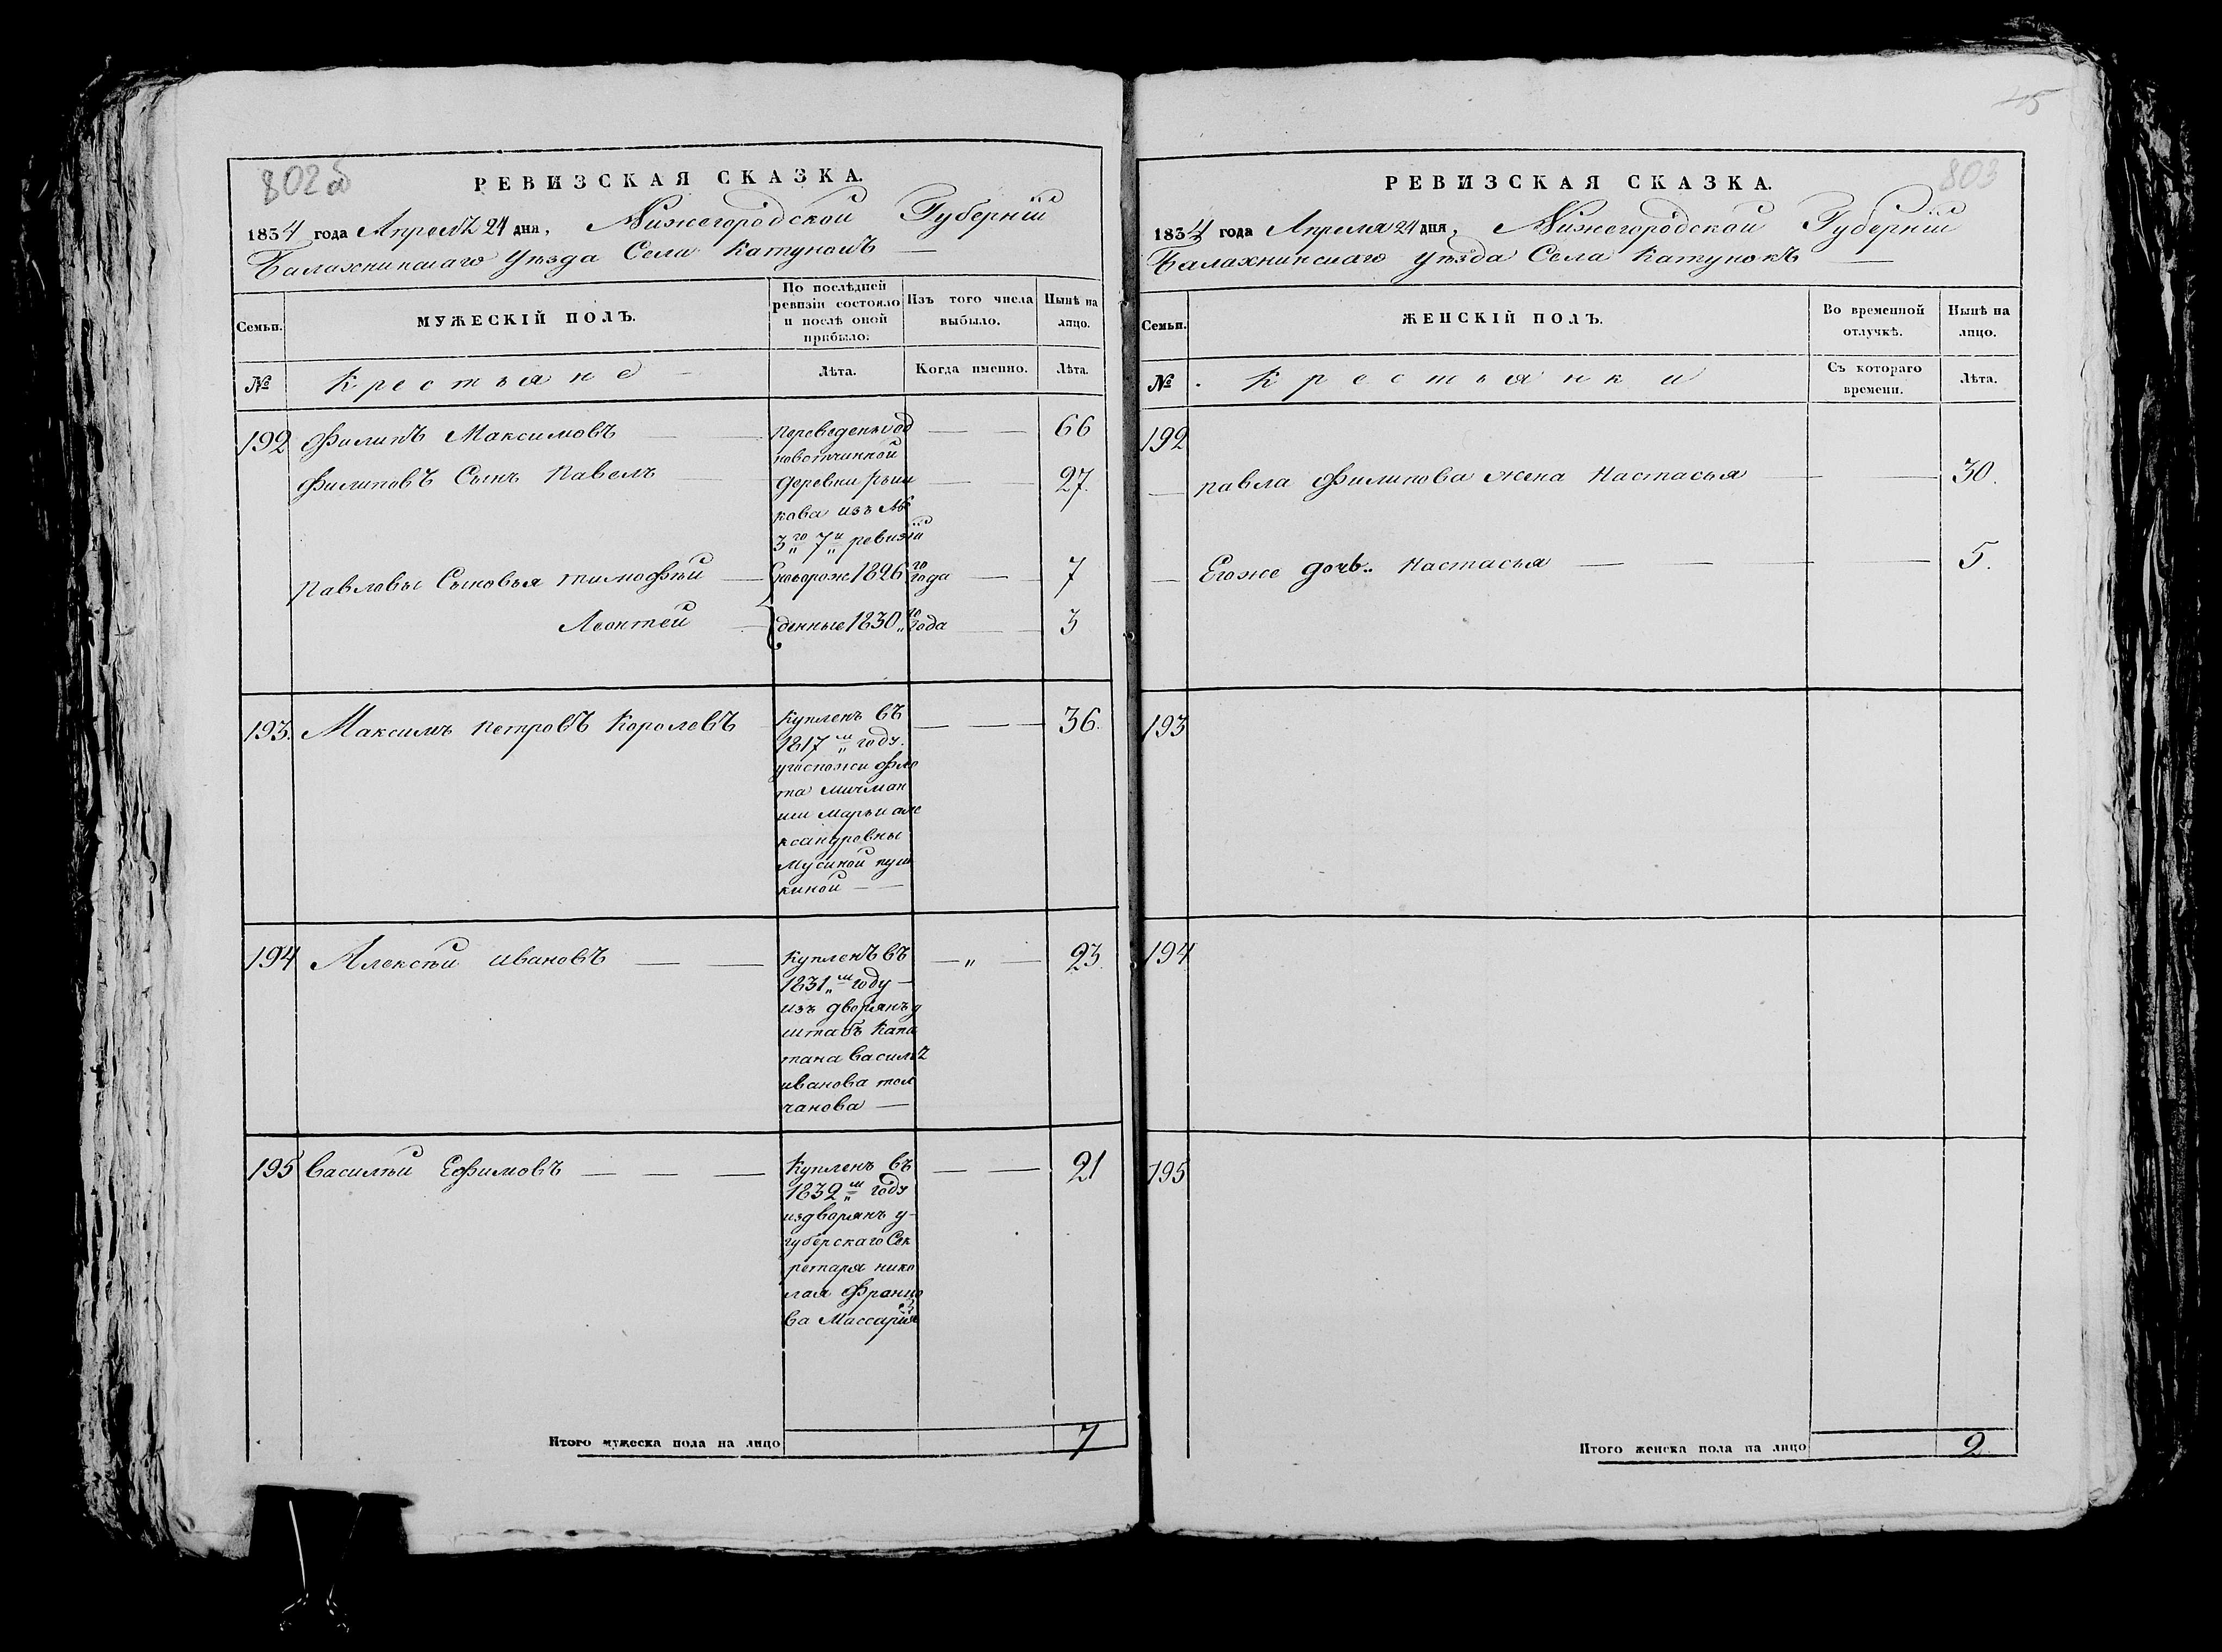 802об
РЕВИЗСКАЯ СКАЗКА.
1834 года Апреля 24 дня, Нижегородской Губернiи
Балахнинскаго Уѣзда Села Катунокъ
Семьи.
МУЖЕСКIЙ ПОЛЪ.
По послѣдней
ревизiи состояло
и послѣ оной
прибыло.
Изъ того числа
выбыло.
Нынѣ на
лицо.
№
Крестьяне
Лѣта.
Когда именно.
Лѣта.
192 Филипъ Максимовъ 66
новотчинной
Филиповъ Сынъ Павелъ деревни 27.
кова изъ №
3го 7й ревизiи
Павловы Сыновья тимофѣй новорож 1826го года 7
Леонтей денные 1830го года 3
193. Максимъ Петровъ Королевъ Купленъ въ 36.
1817м году.
угоспожи фло
та мичман
ши марьи але
ксандровны
Мусиной пуш
киной
194 Алексѣй ивановъ Купленъ въ 23.
1831м году
изъ дворянъ у
штабъ Капи
тана Василья
иванова мол
чанова
195 Василѣй Ефимовъ Купленъ въ 21
1832м году
издворянъ у
губерскаго Сек
ретаря нико
лая Францо
ва Массария
Итого мужеска пола на лицо 7
45
803
РЕВИЗСКАЯ СКАЗКА.
1834 года Апреля 24 дня, Нижегородской Губернiи
Балахнинскаго Уѣзда Села Катунокъ
Семьи.
ЖЕНСКIЙ ПОЛЪ.
Во временной
отлучкѣ.
Нынѣ на
лицо.
№
Крестьянки
Съ котораго
времени.
Лѣта.
192
павла Филипова жена Настасья 30.
Егоже дочь Настасья 5.
193
194
195
Итого женска пола на лицо 2.